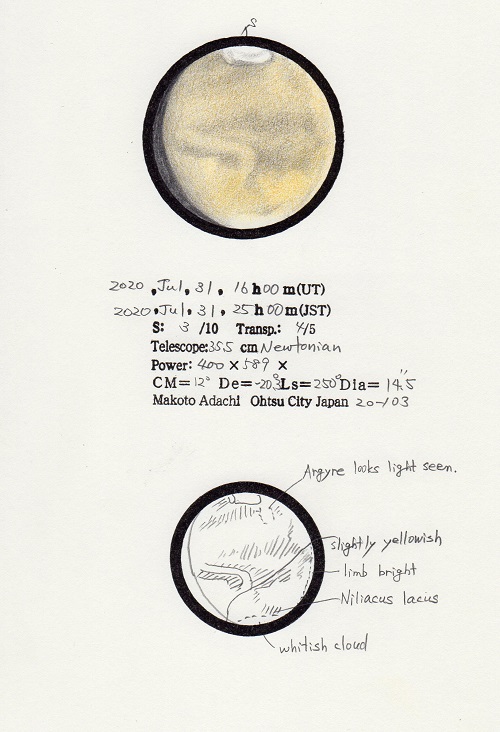 S
2020, Jul, 31, 16h00m(UT)
2020, Jul, 31, 25h00m(JST)
S: 3 /10 Transp.: 4/5
Telescope: 355 cm Newtonian
Power: 400 × 589 ×
CM= 12° De= -20.3° Ls= 250° Dia= 14".5
Makoto Adachi Ohtsu City Japan 20-103
Argyre looks light seen.
slightly yellowish
limb bright
Niliacus lacus
whitish cloud